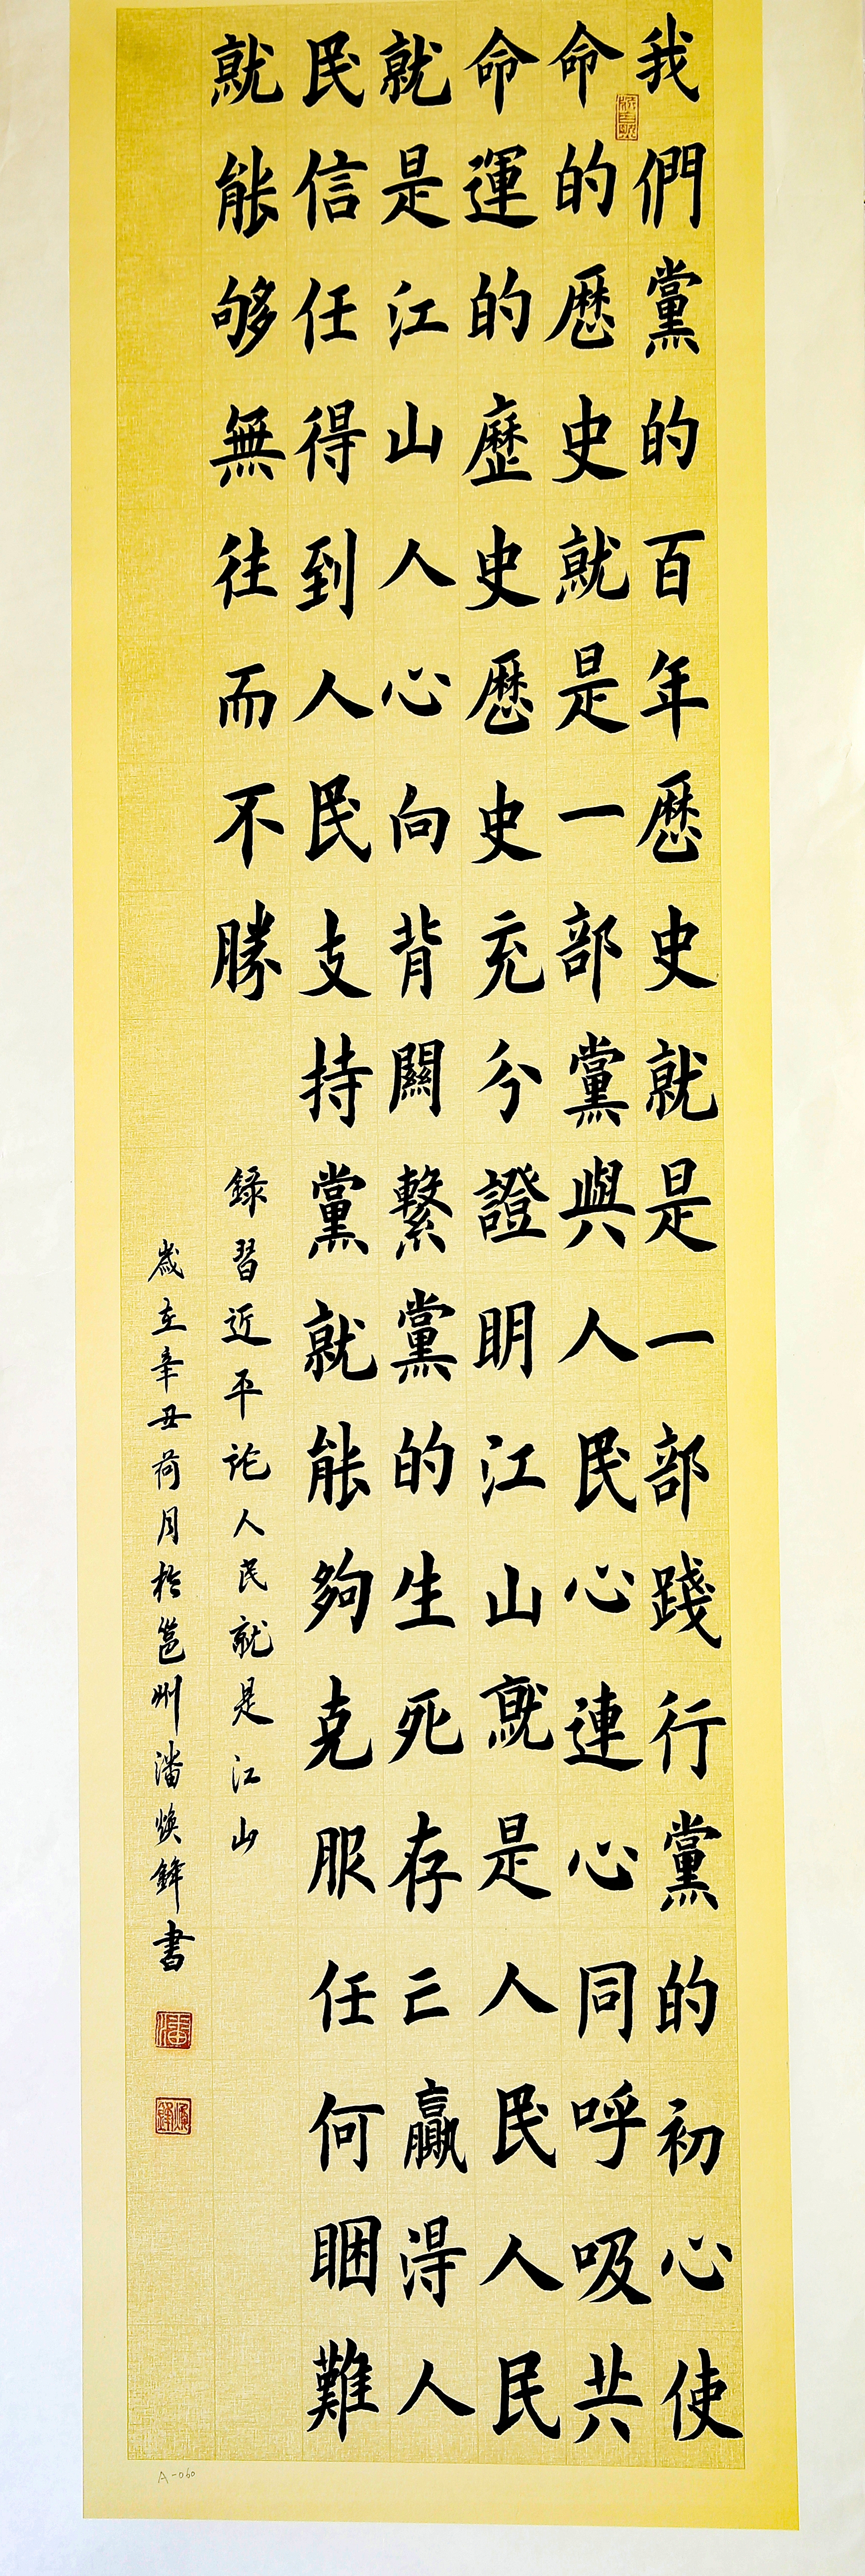 我們黨的百年歷史就是一部踐行黨的初心使
命的歷史就是一部黨與人民心連心同呼吸共
命運的歷史歷史充分證眀江山就是人民人民
就是江山人心向背關繫黨的生死存亡贏得人
民信任得到人民支持黨就能夠克服任何睏難
就能够無往而不勝
錄習近平论人民就是江山
歲在辛丑荷月於邕州潘焕鋒書
潘
焕鋒
A-060